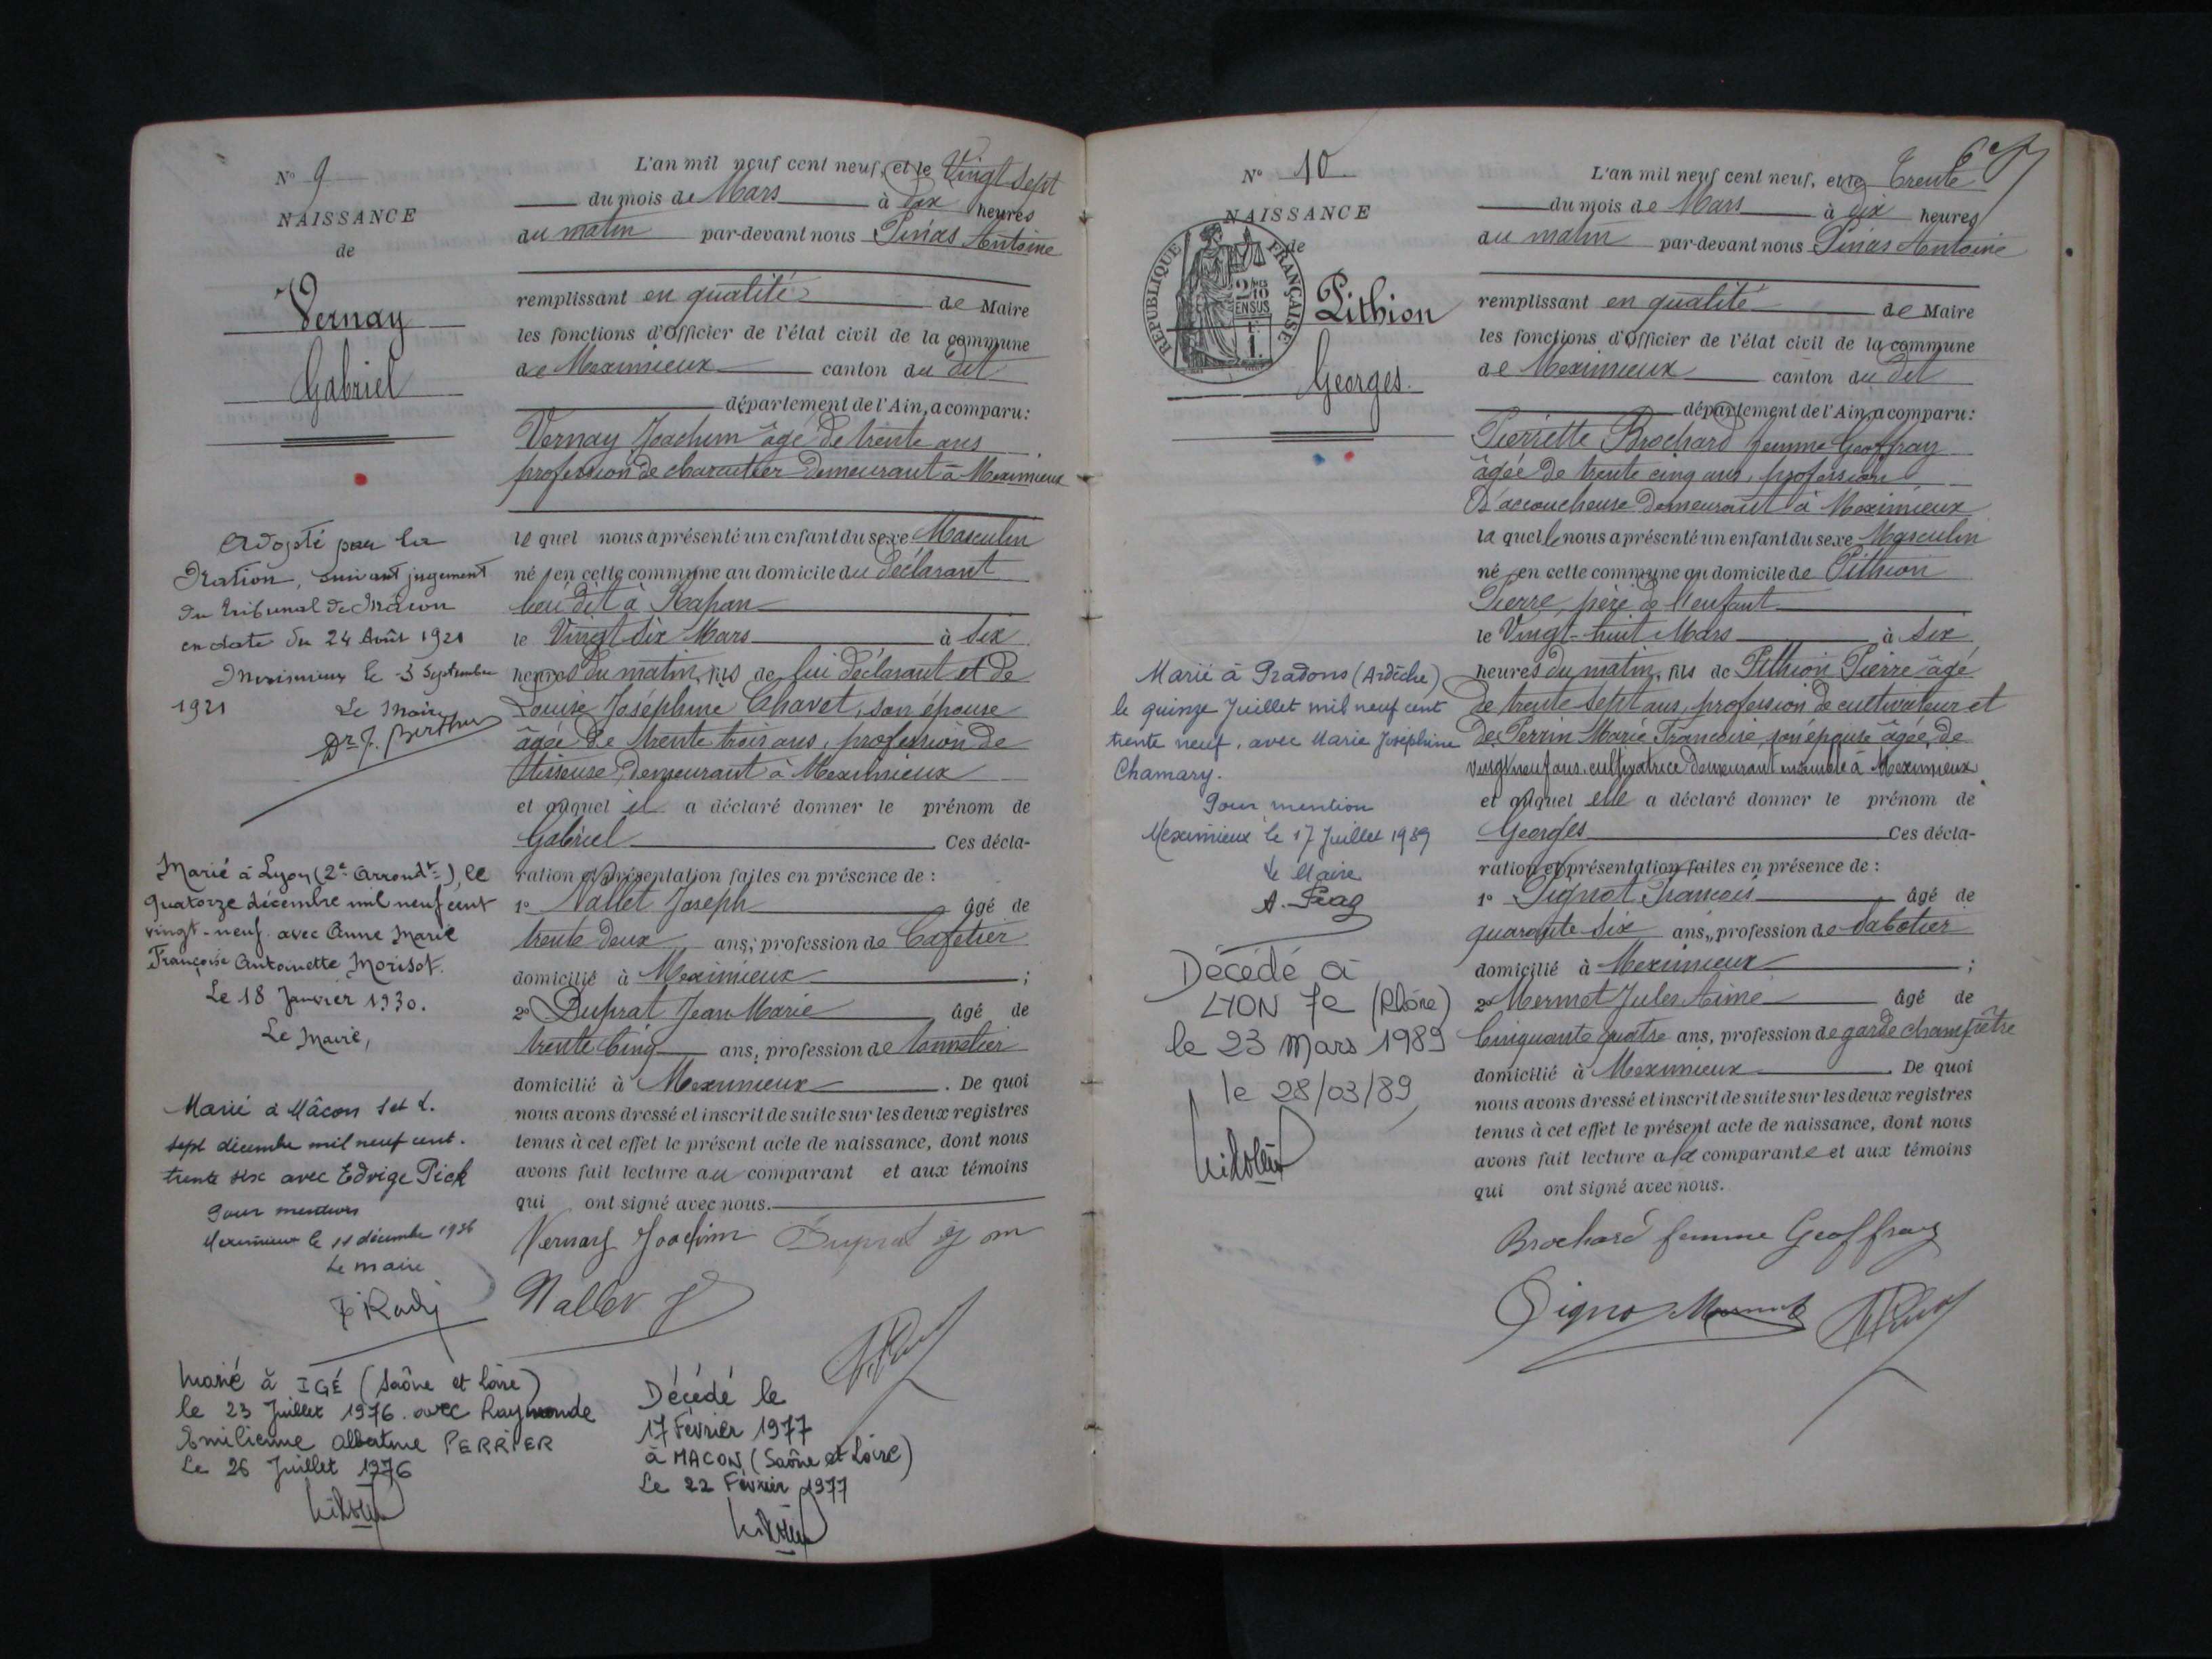 N° 9
NAISSANCE
de
Vernay
Gabriel
Adopté par la
Nation, suivant jugement
du tribunal de Macon
en date du 24 Août 1921
Meximieux le 3 Septembre
1921
Le Maire
Dr J. Berthier
Marié à Lyon (2e Arrondt), le
quatorze décembre mil neuf cent
vingt-neuf avec Anne Marie
Françoise Antoinette Morisot.
Le 18 Janvier 1930.
Le Maire,
Marié à Mâcon S et L.
sept décembre mil neuf cent.
trente six avec Edvige Pick
Pour mention
Meximieux le 11 décembre 1936
Le maire
Marié à IGÉ (Saône et Loire)
le 23 Juillet 1976. avec Raymonde
Emilienne Albertine PERRIER
Le 26 Juillet 1976
L'an mil neuf cent neuf, et le Vingt Sept
du mois de Mars à dix heures
du matin par-devant nous Pinas Antoine
remplissant en qualité de Maire
les fonctions d'Officier de l'état civil de la commune
de Meximieux canton du dit
département de l'Ain, a comparu:
Vernay Joachim âgé de trente ans
profession de charcutier demeurant à Meximieux
le quel nous a présenté un enfant du sexe Masculin
né en cette commune au domicile du déclarant
lieu dit à Rapan
le Vingt Six Mars à Six
heures du matin, fils de lui déclarant et de
Louise Joséphine Chavet, son épouse
âgée de trente trois ans, profession de
tisseuse, demeurant à Meximieux
et auquel il a déclaré donner le prénom de
Gabriel Ces décla-
ration et présentation faites en présence de :
1° Nallet Joseph âgé de
trente deux ans, profession de Cafetier
domicilié à Meximieux ;
2° Duprat Jean Marie âgé de
trente Cinq ans, profession de tonnelier
domicilié à Meximieux . De quoi
nous avons dressé et inscrit de suite sur les deux registres
tenus à cet effet le présent acte de naissance, dont nous
avons fait lecture au comparant et aux témoins
qui ont signé avec nous.
Vernay Joachim Duprat
Nallet J
Décédé le
17 Février 1977
à MACON (Saône et Loire)
Le 22 Février 1977
N° 10
NAISSANCE
de
REPUBLIQUE FRANÇAISE
Pithion
Georges.
Marié à Pradons (Ardèche)
le quinze Juillet mil neuf cent
trente neuf, avec Marie Joséphine
Chamary.
Pour mention
Meximieux le 17 Juillet 1939
Le Maire
Décédé à
LYON 7e (Rhône)
le 23 Mars 1989
le 28/03/89
L'an mil neuf cent neuf, et le Trente
du mois de Mars à dix heures
du matin par-devant nous Pinas Antoine
remplissant en qualité de Maire
les fonctions d'Officier de l'état civil de la commune
de Meximieux canton du dit
département de l'Ain, a comparu:
Pierrette Brochard femme Geoffray
âgée de trente cinq ans, profession
D'accoucheuse demeurant à Meximieux
la quelle nous a présenté un enfant du sexe Masculin
né en cette commune au domicile de Pithion
Pierre, père de l'enfant
le Vingt-huit Mars à Six
heures du matin, fils de Pithion Pierre âgé
de trente sept ans, profession de cultivateur et
de Perrin Marie Françoise, son épouse âgée, de
vingt neuf ans, cultivatrice demeurant ensemble à Meximieux
et auquel elle a déclaré donner le prénom de
Georges Ces décla-
ration et présentation faites en présence de :
1° Pignot François âgé de
quarante six ans, profession de Sabotier
domicilié à Meximieux ;
2° Mermet Jules Aimé âgé de
Cinquante quatre ans, profession de garde champêtre
domicilié à Meximieux . De quoi
nous avons dressé et inscrit de suite sur les deux registres
tenus à cet effet le présent acte de naissance, dont nous
avons fait lecture a la comparante et aux témoins
qui ont signé avec nous.
Brochard femme Geoffray